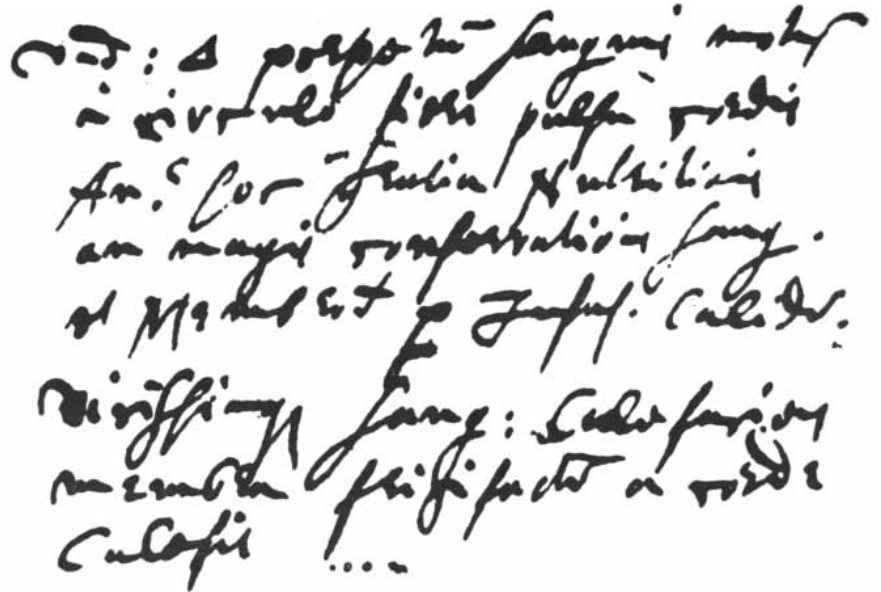 und : Δ perpetuū sanguinis motus
in circulo fieri pulsu cordis
An? Cor gratia Nutritionis
an magis conservatione sang.
et Membror p Infus. Calidi.
sang : Calefaciens
membra frigifactū a corde
Calefit ....